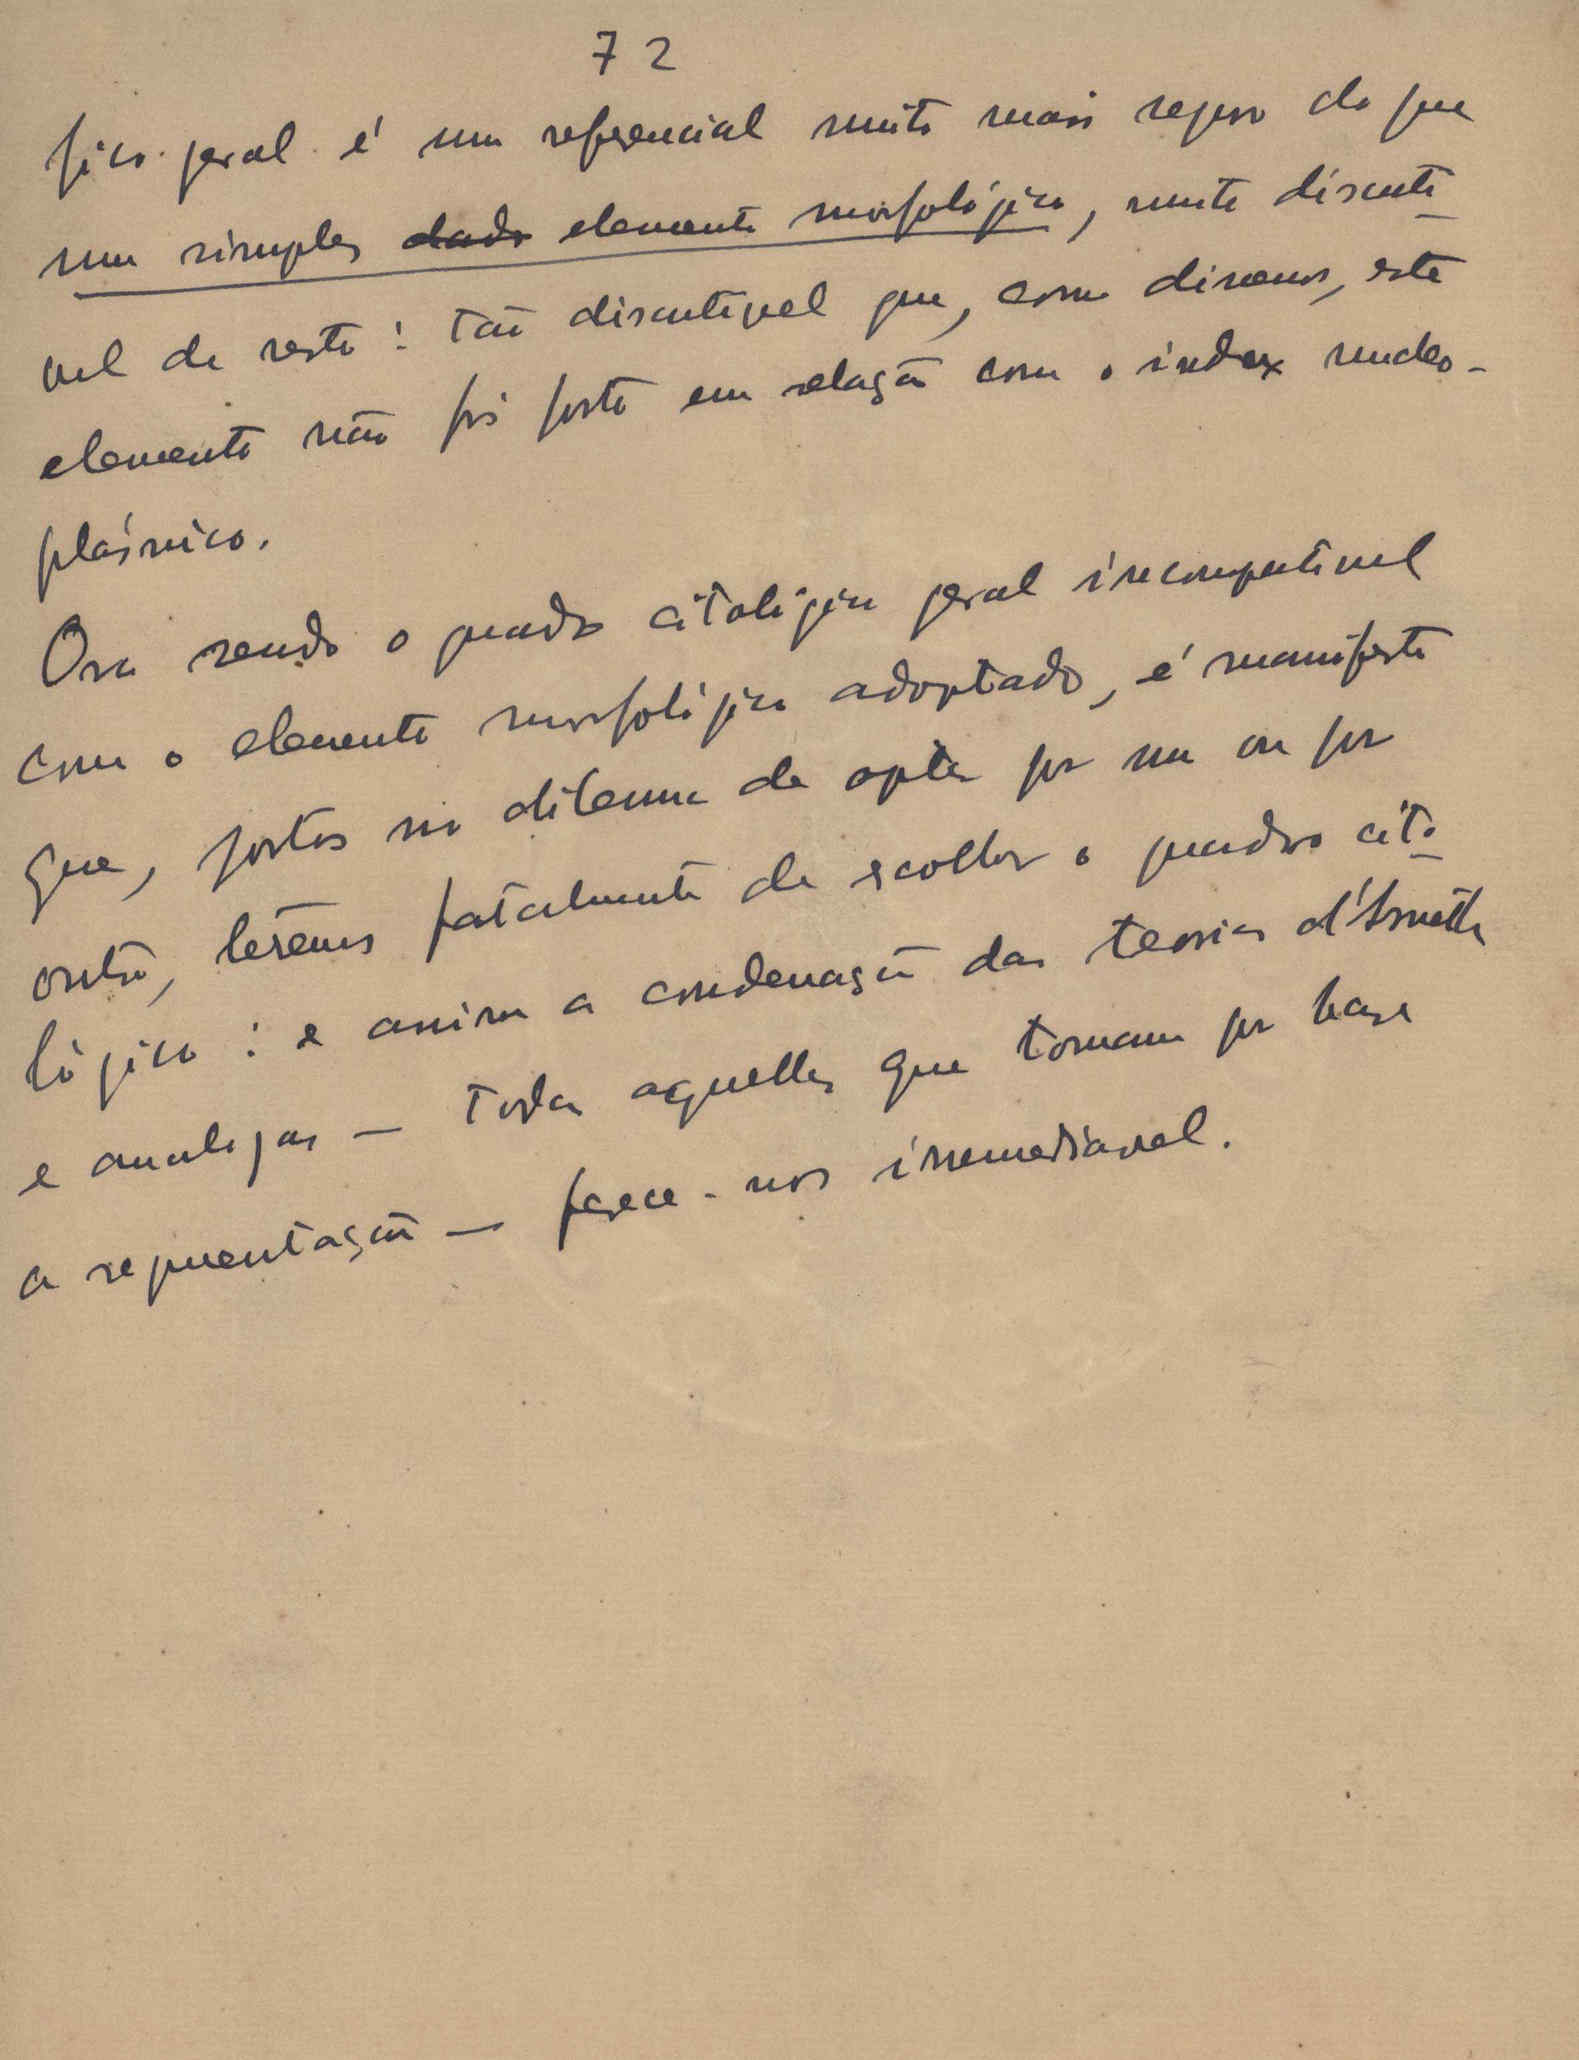 72
gico geral é um referencial muito mais seguro do que
um simples dado elemento morfológico, muito discuti
vel de resto: tão discutivel que, como dissemos, este
elemento não foi posto em relação com o index nucleo-
plásmico.
Ora sendo o quadro citológico geral incompativel
com o elemento morfológico adoptado, é manifesto
que, postos no dilema de optar por um ou por
outro, terêmos fatalmente de escolher o quadro cito
lógico: e assim a condenação das teorias
e analogas — todas aquellas que tomam por base
a representação — parece-nos irremediavel.